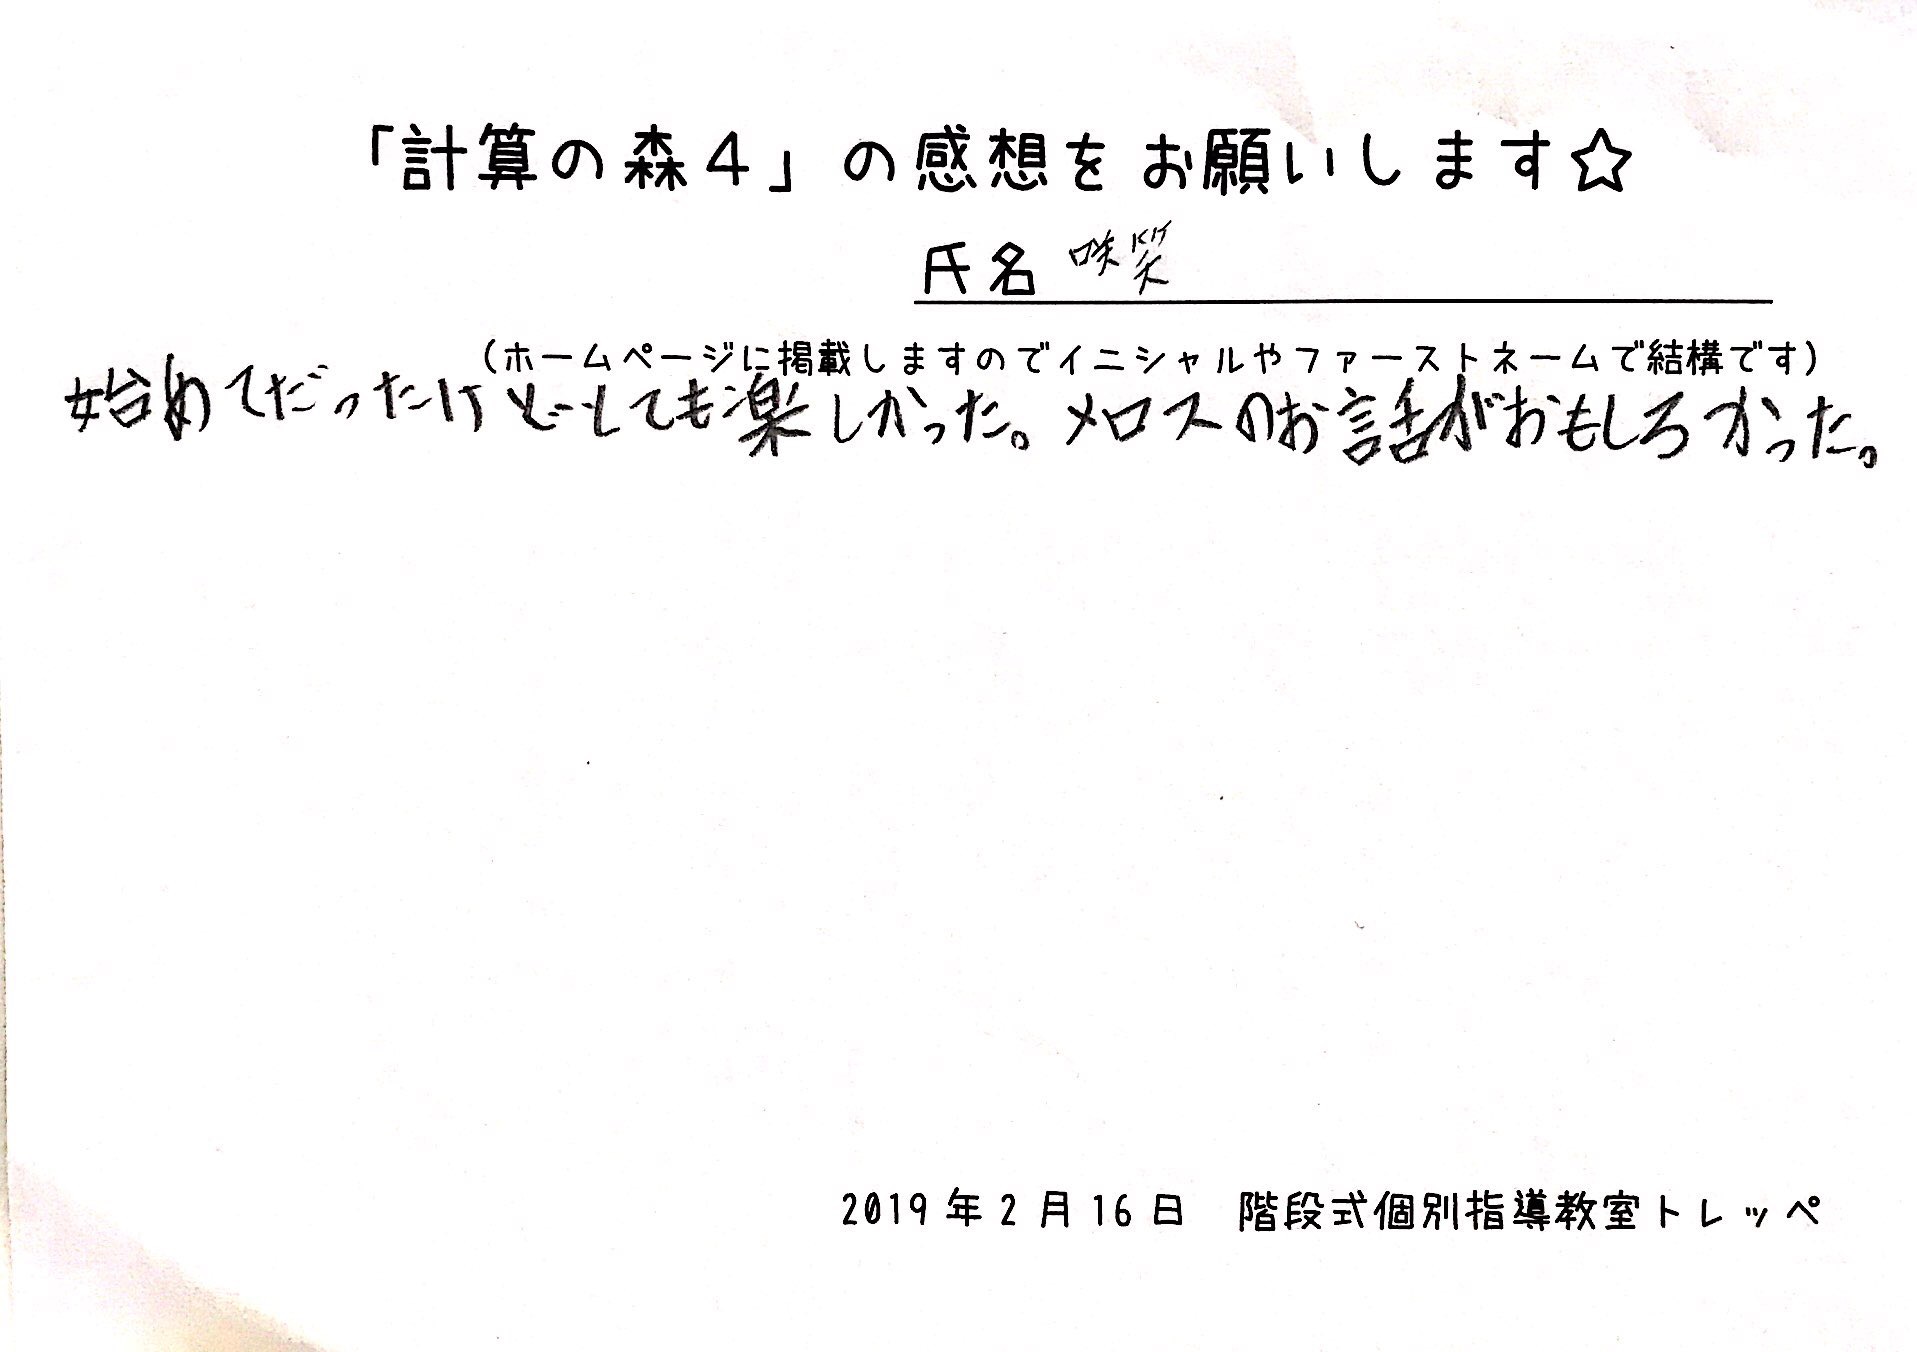 「計算の森4」の感想をお願いします☆
氏名 咲笑
(ホームページに掲載しますのでイニシャルやファーストネームで結構です)
始めてだったけどとても楽しかった。メロスのお話がおもしろかった。
2019年2月16日 階段式個別指導教室トレッペ